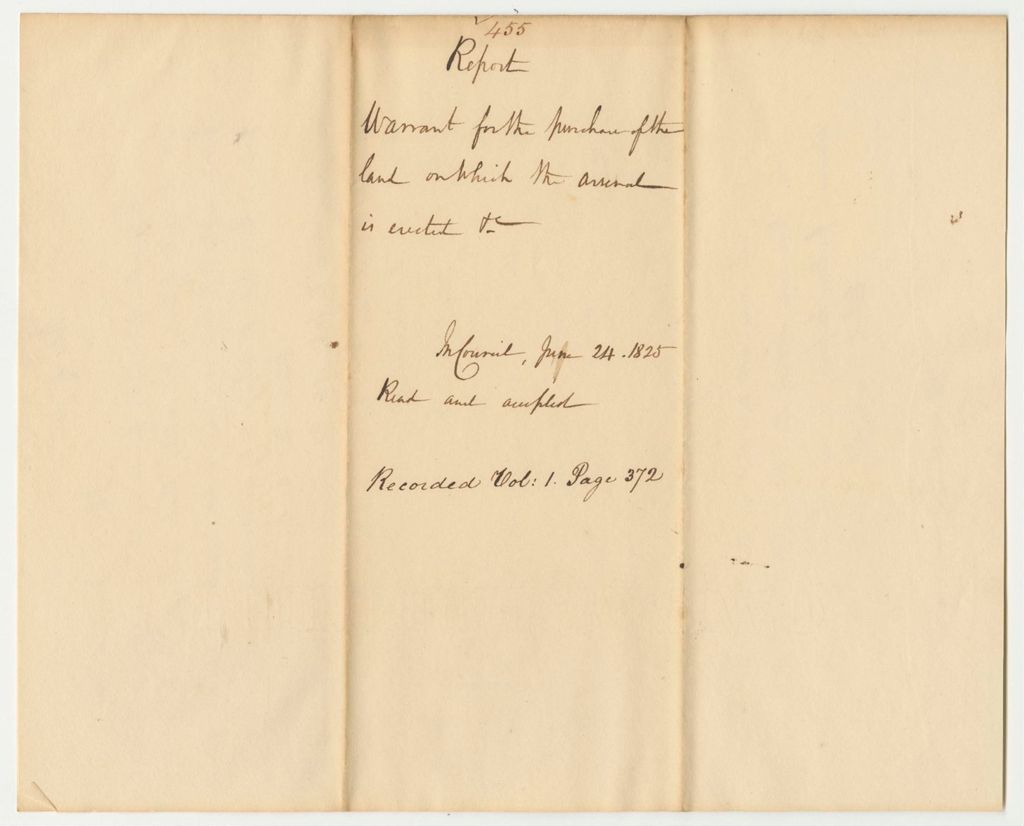 455
Report
Warrant for the purchase of the
land on which the arsenal
is erected &c
In Council, June 24. 1825
Read and accepted
Recorded Vol: 1. Page 372